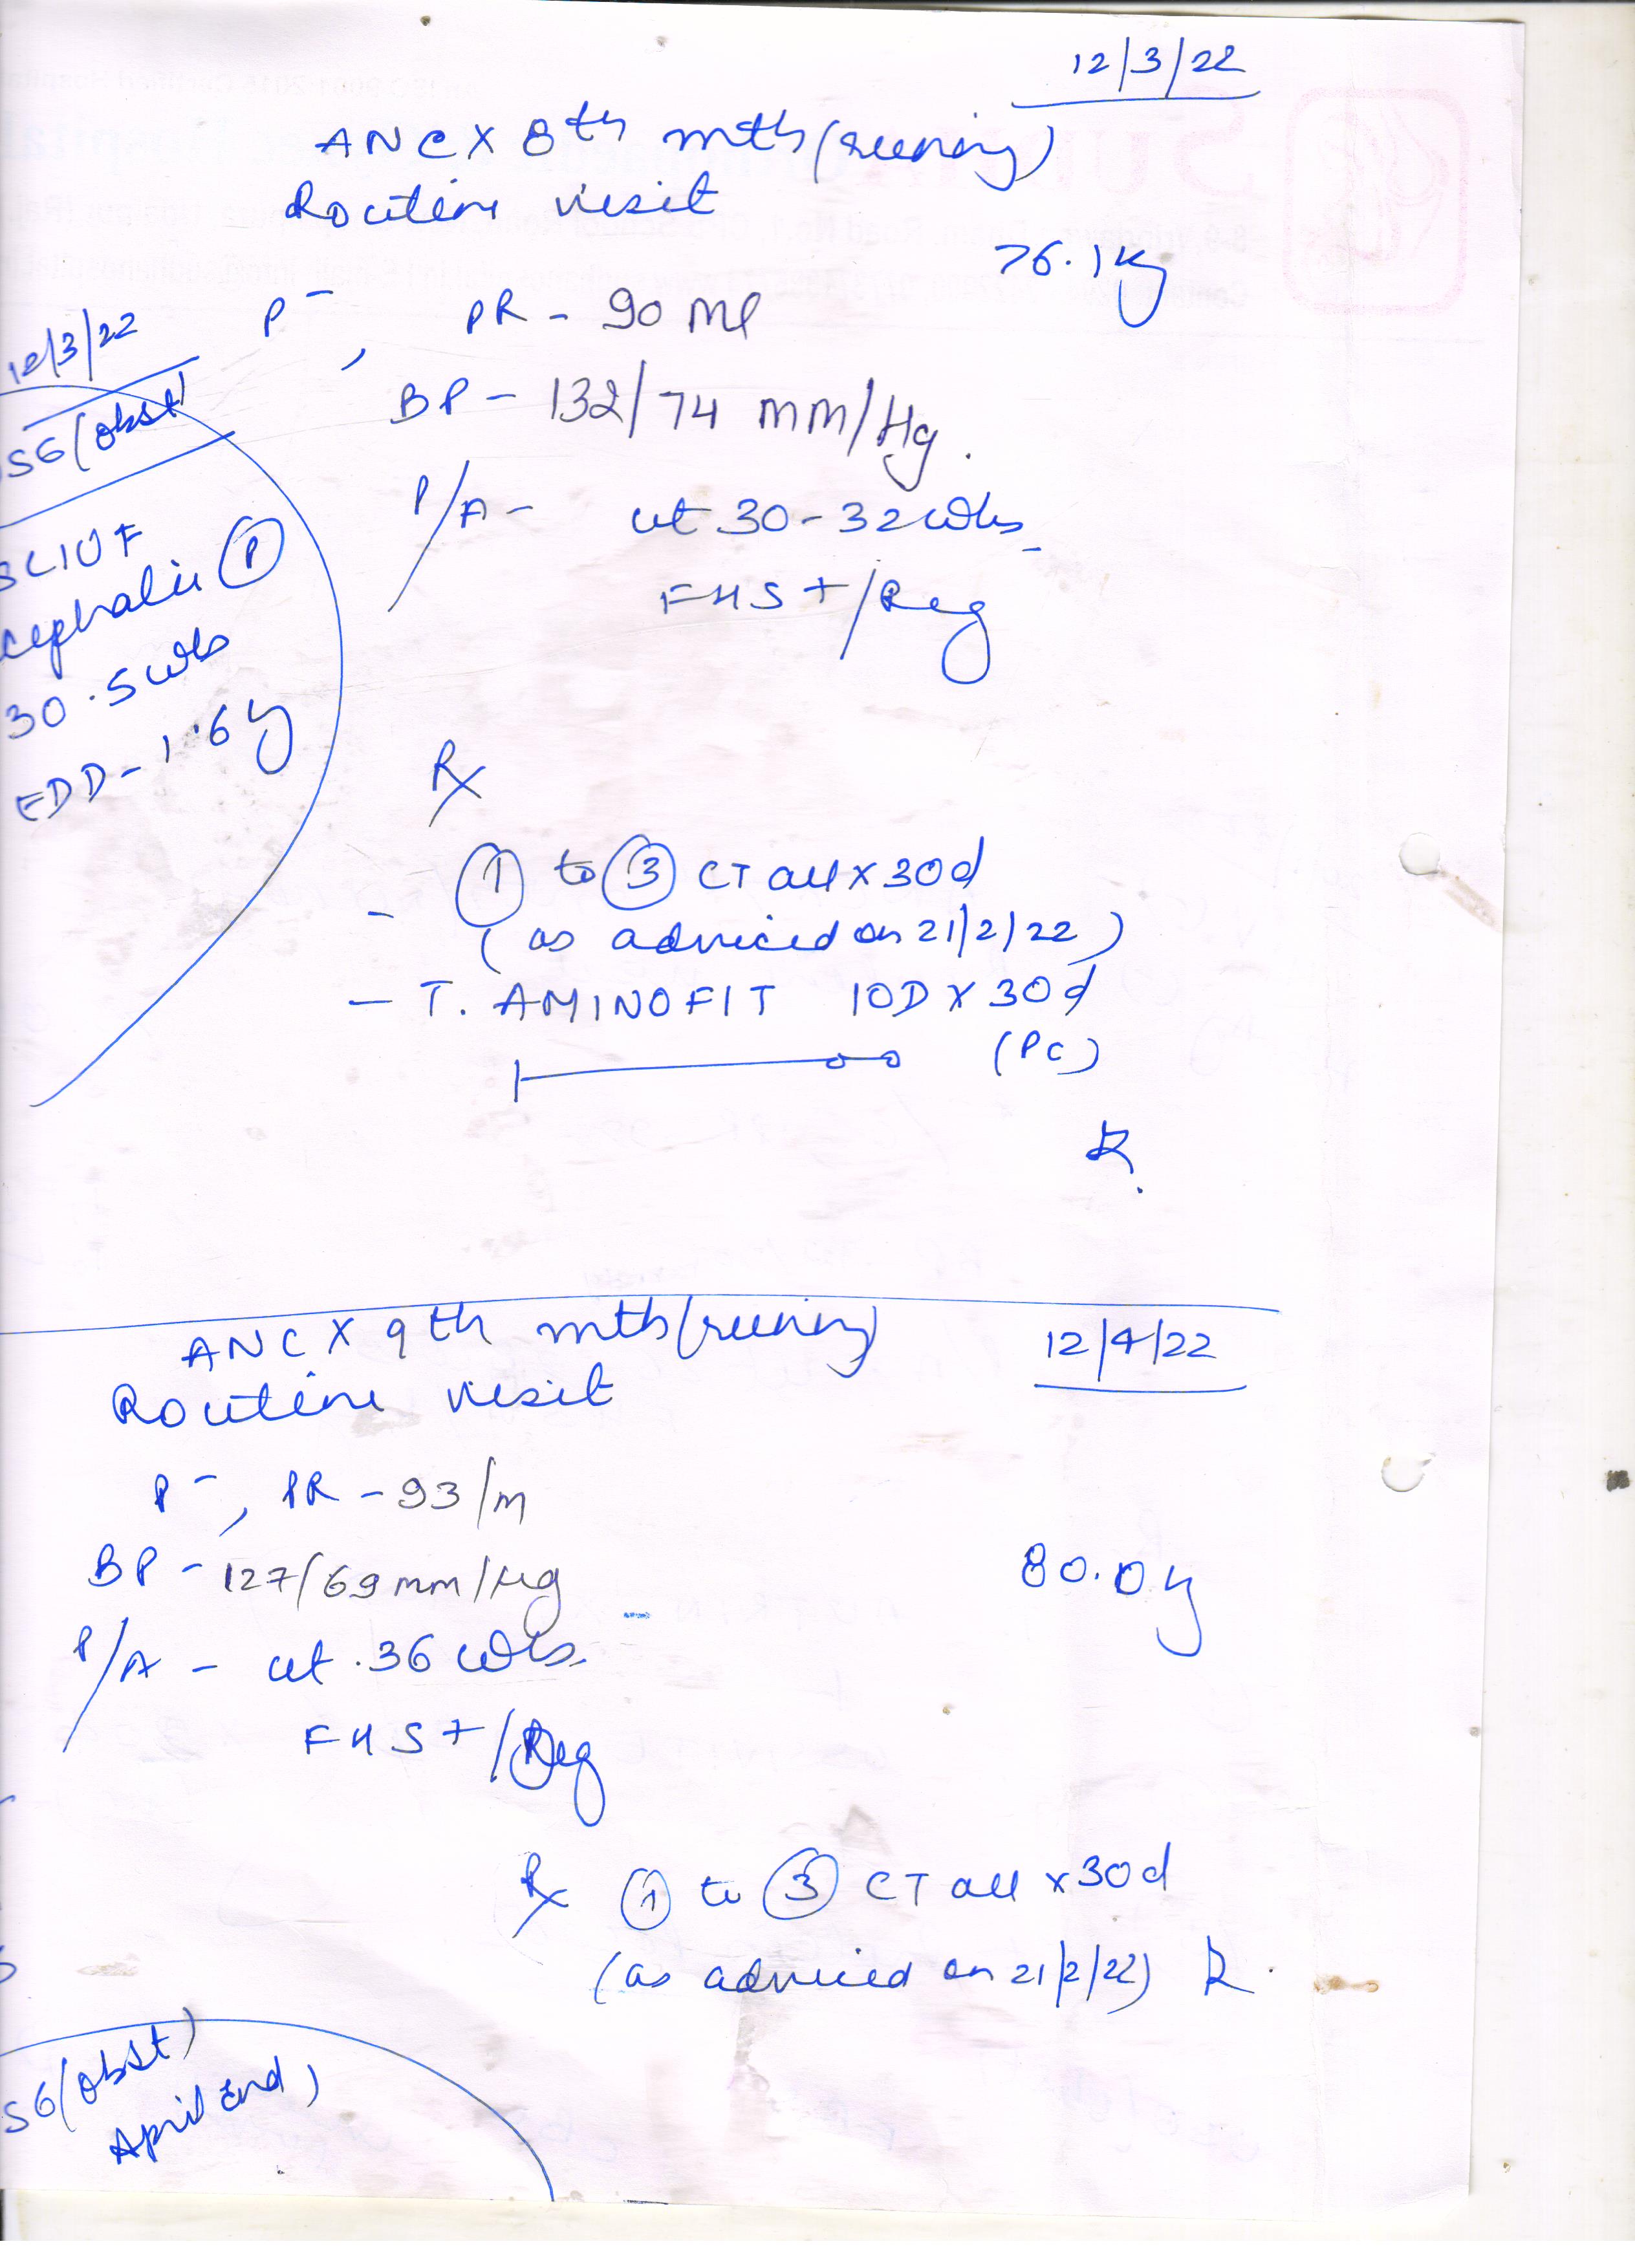 12/3/22
ANC X 8th mth (running)
Routine visit
76.1 kg
P -, PR - 90 Ml
BP - 132/74 mm/Hg.
P/A - ut 30-32 wks
FHS +/Reg
12/3/22
SG (obst)
SLIUF
cephalic (P)
30.5 wks
EDD - 1.6 kg
Rx
- ① to ③ CT all x 30d
(as adviced on 21/2/22)
- T. AMINOFIT 10D X 30d
(PC)
R.
ANC X 9th mth (running)
12/4/22
Routine visit
P -, PR - 93/m
BP - 127/69 mm/Hg
80.0 kg
P/A - ut .36 wks.
FHS +/Reg
Rx ① to ③ CT all x 30d
(as adviced on 21/2/22) R.
SG (obst)
April End)